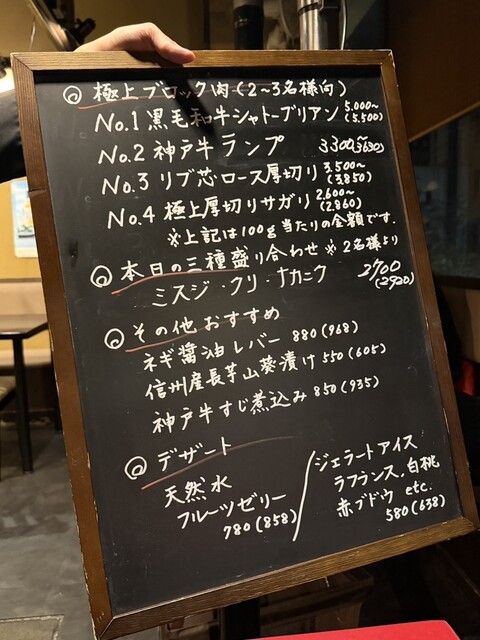 ◎ 極上ブロック肉(2〜3名様向)
No.1 黒毛和牛シャトーブリアン 5,000〜(5,500)
No.2 神戸牛ランプ 3300〜(3630)
No.3 リブ芯ロース厚切り 3,500〜(3,850)
No.4 極上厚切りサガリ 2,600〜(2,860)
※上記は100g当たりの金額です.
◎ 本日の三種盛り合わせ ※2名様より
ミスジ・クリ・ナカニク 2700(2920)
◎ その他おすすめ
ネギ醤油レバー 880(968)
信州産長芋山葵漬け 550(605)
神戸牛すじ煮込み 850(935)
◎ デザート
天然水
フルーツゼリー
780(858)
ジェラートアイス
ラフランス,白桃
赤ブドウ etc.
580(638)